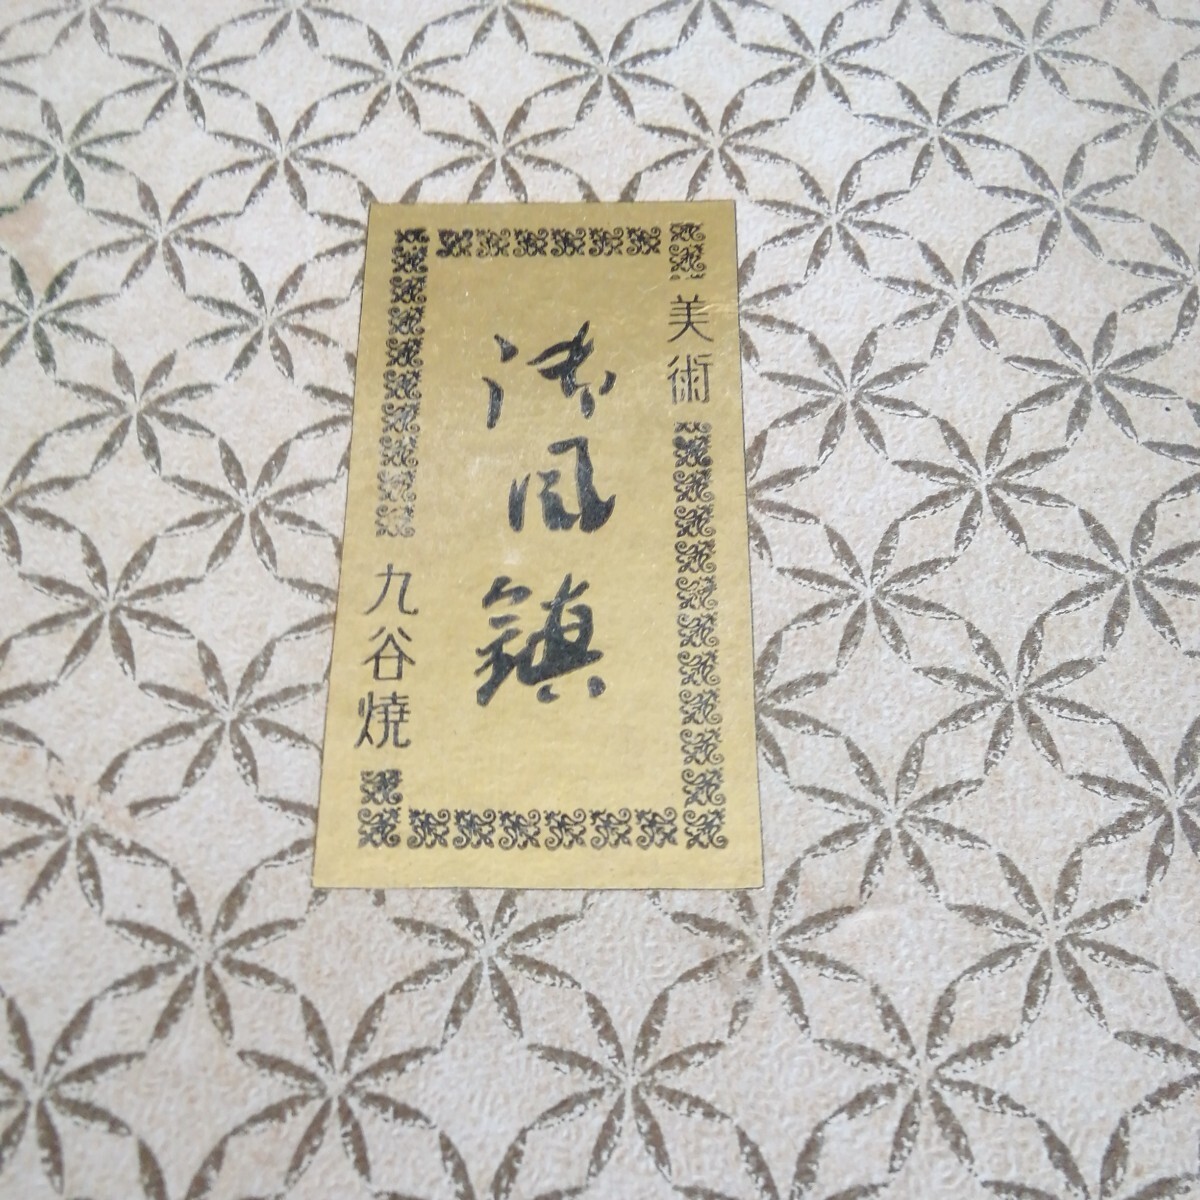 美術
清風鎮
九谷焼